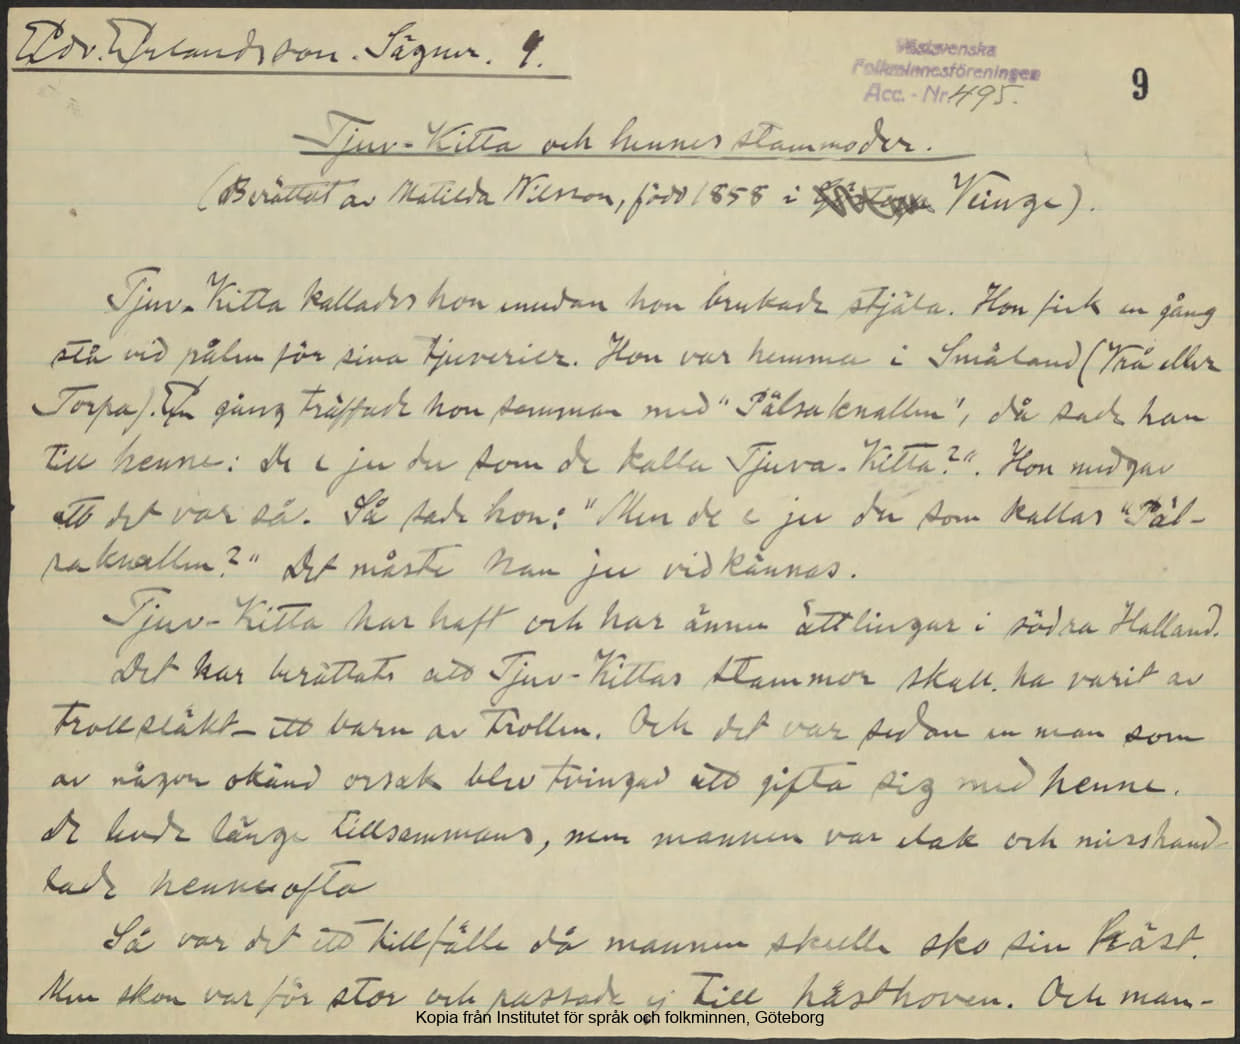 Edv. Erlandsson. Sägner. 9.
Västsvenska
Folkminnesföreningen
Acc. - Nr 495.
9
Tjuv-Kitta och hennes stammoder.
(Berättat av Matilda Nilsson, född 1858 i Veinge).
Tjuv-Kitta kallades hon emedan hon brukade stjäla. Hon fick en gång
stå vid pålen för sina tjuverier. Hon var hemma i Småland (Vrå eller
Torpa). En gång träffade hon samman med "Pälsaknallen", då sade han
till henne: De e ju du som de kalla Tjuva-Kitta?". Hon medgav
att det var så. Så sade hon: "Men de e ju du som kallas "Päl-
saknallen?" Det måste han ju vidkännas.
Tjuv-Kitta har haft och har ännu ättlingar i södra Halland.
Det har berättats att Tjuv-Kittas stammor skall ha varit av
trollsläkt - ett barn av trollen. Och det var sedan en man som
av någon okänd orsak blev tvingad att gifta sig med henne.
De levde länge tillsammans, men mannen var elak och misshand-
lade henne ofta
Så var det ett tillfälle då mannen skulle sko sin häst.
Men skon var för stor och passade ej till hästhoven. Och man-
Kopia från Institutet för språk och folkminnen, Göteborg